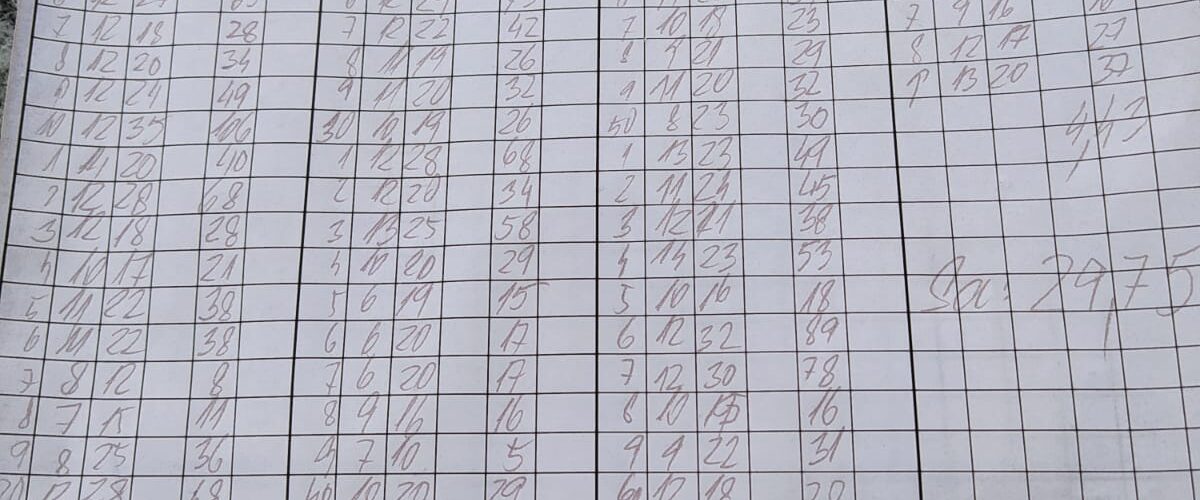 7 12 18 28 7 12 22 42 7 10 18 23 7 9 16
8 12 20 34 8 11 19 26 8 9 21 29 8 12 17 27
9 12 24 49 9 11 20 32 9 11 20 32 9 13 20 37
10 12 35 106 30 10 19 26 50 8 23 30
1 14 20 40 1 12 28 68 1 13 23 49
2 12 28 68 2 12 20 34 2 11 24 45
3 12 18 28 3 13 25 58 3 12 21 38
4 10 17 21 4 10 20 29 4 14 23 53
5 11 22 38 5 6 19 15 5 10 16 18 Sa: 29,75
6 11 22 38 6 6 20 17 6 12 32 89
7 8 12 8 7 6 20 17 7 12 30 78
8 7 15 11 8 9 16 16 8 10 15 16
9 8 25 36 9 7 10 5 9 9 22 31
20 12 28 68 40 10 20 29 60 12 18